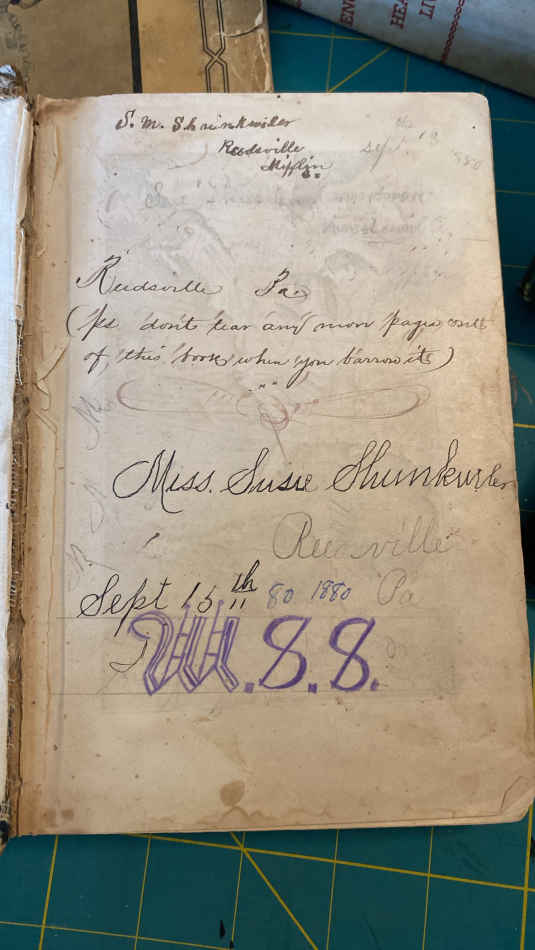 EN
HEA
LI
S. M. Shrinkwiler
Reedsville
Mifflin
Sept. 18
Reedsville Pa.
(Ps don't tear any mor pages out
of this book when you barrow it)
Miss. Susie Shunkwiler
Reedsville
Sept 15 th 80 1880 Pa
M.S.S.